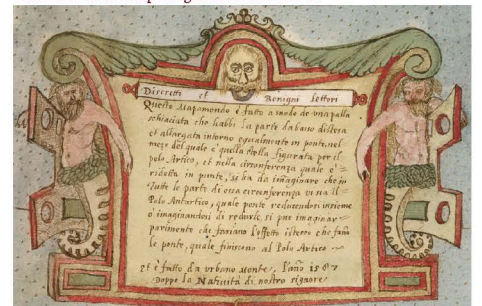 Discretti et Benigni lettori
Questo Mapamondo è fatto a modo de una palla
schiaciata che habbi la parte da basso distesa
et allargata intorno egualmente in ponte, nel
mezo del quale e' quella stella figurata per il
polo Artico, et nella circonferenza quale e'
ridotta in ponte, si ha da imaginare che in
tutte le parte di essa circonferenza vi sia il
Polo Antartico, quale ponte reducendosi insieme
o imaginandosi di redurle, si può imaginar=
parimente che faciano l'effetto istesso che fano
le ponte, quale finiscono al Polo Artico
et è fatto da urbano Monte, l'anno 1587
doppo la Natività di nostro signore